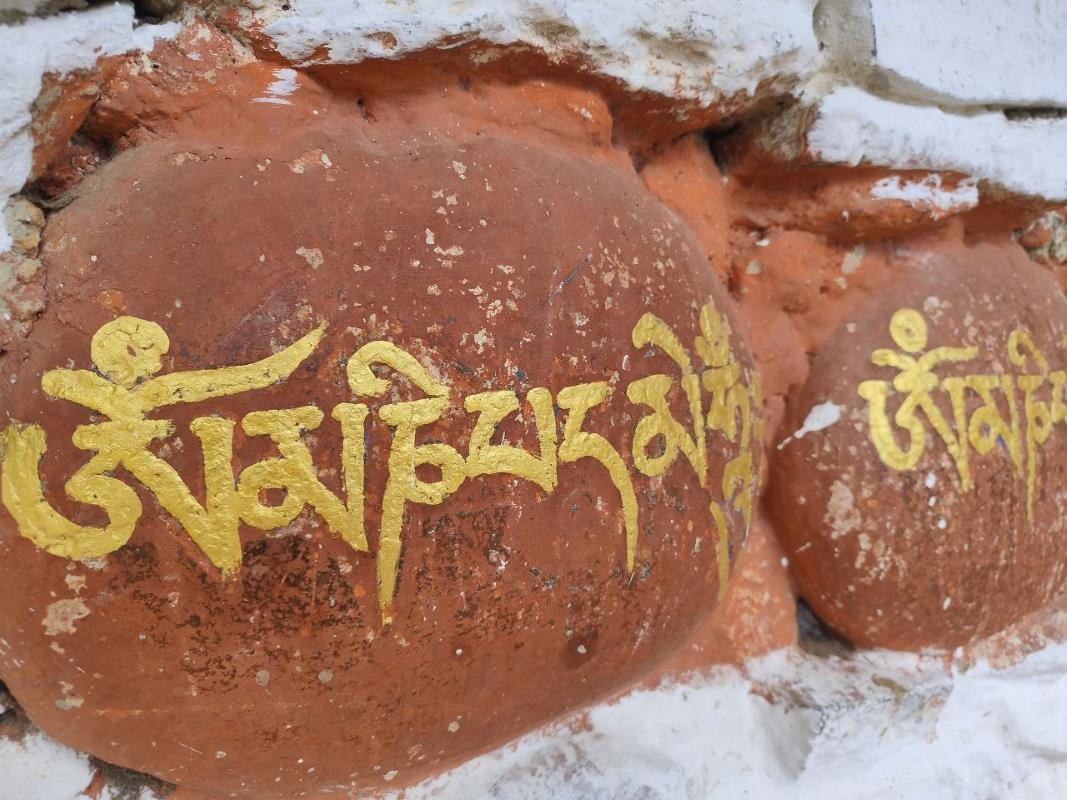 ཨོཾམཎིཔདམེཧཱུྃ
ཨོཾམཎི